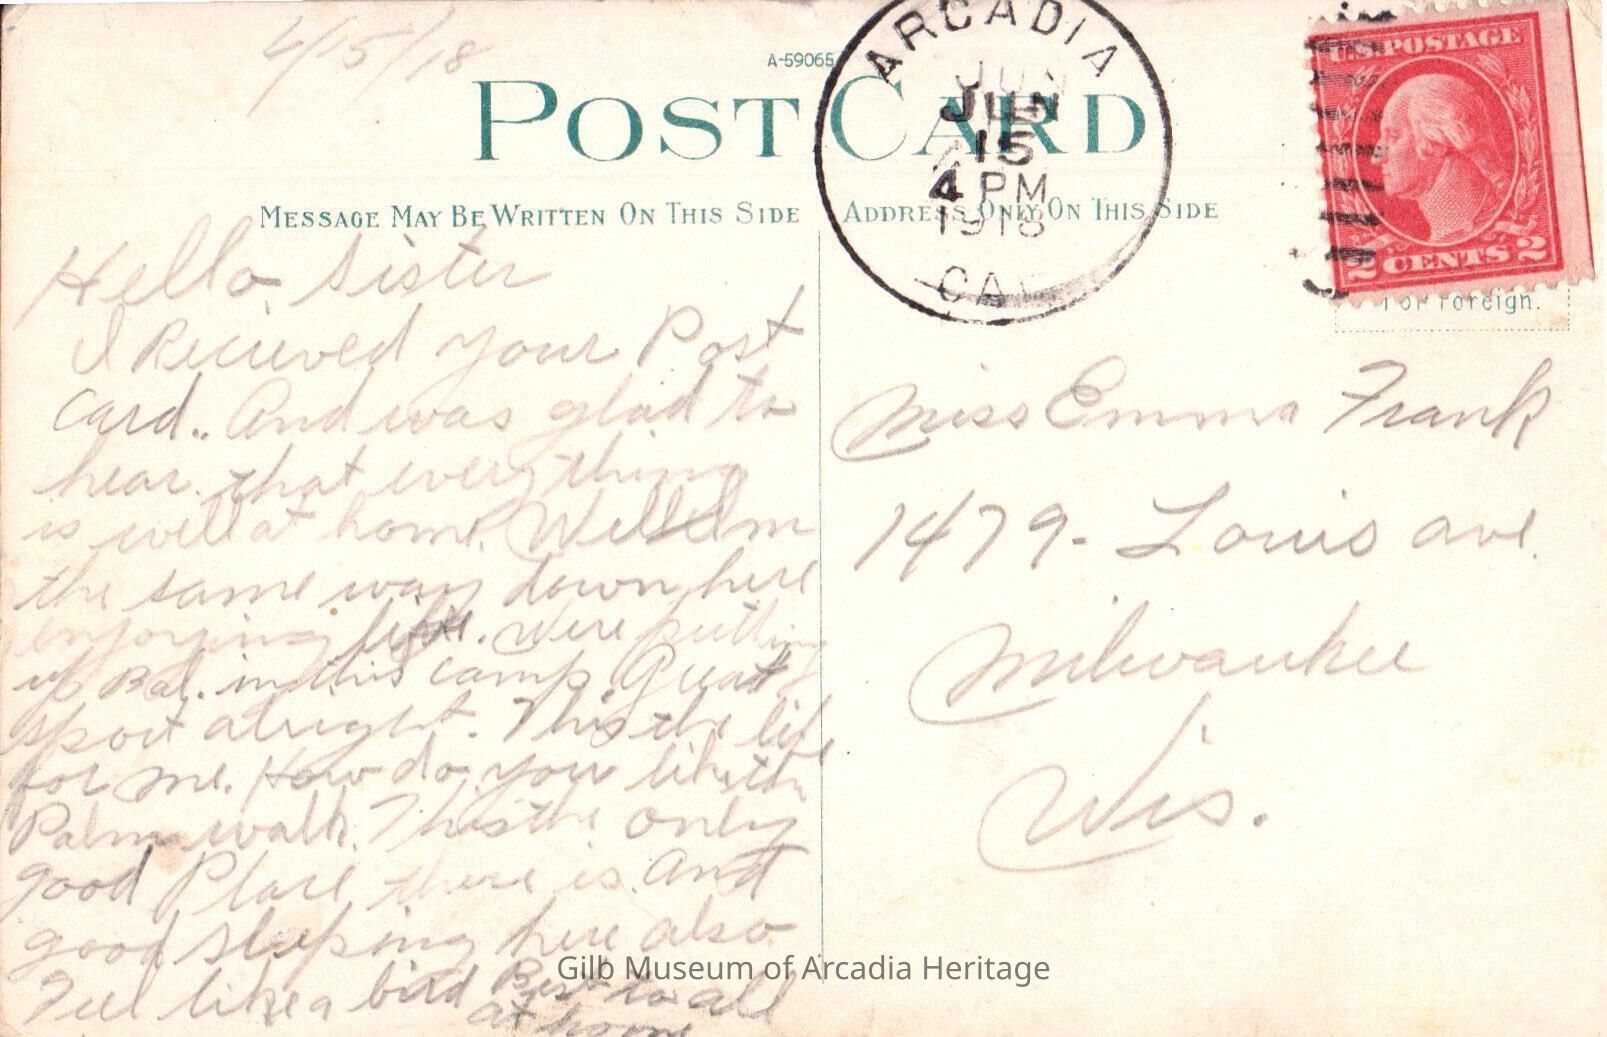 4/15/18
A-59065
POST CARD
ARCADIA
JUN
15
4 PM
1918
CAL
U.S. POSTAGE
2 CENTS 2
For Foreign.
MESSAGE MAY BE WRITTEN ON THIS SIDE
ADDRESS ONLY ON THIS SIDE
Hello Sister
I Recieved your Post
Card.. And was glad to
hear that everything
is well at home.
the same way down here
enjoying life. Were putting
up Bal. in this camp. Great
sport alright. This the life
for me. How do you like the
Palm walk. This the only
good Place there is. And
good sleeping here also
Feel like a bird Best to all
at home
Miss Emma Frank
1479- Louis ave.
Milwaukee
Wis.
Gilb Museum of Arcadia Heritage